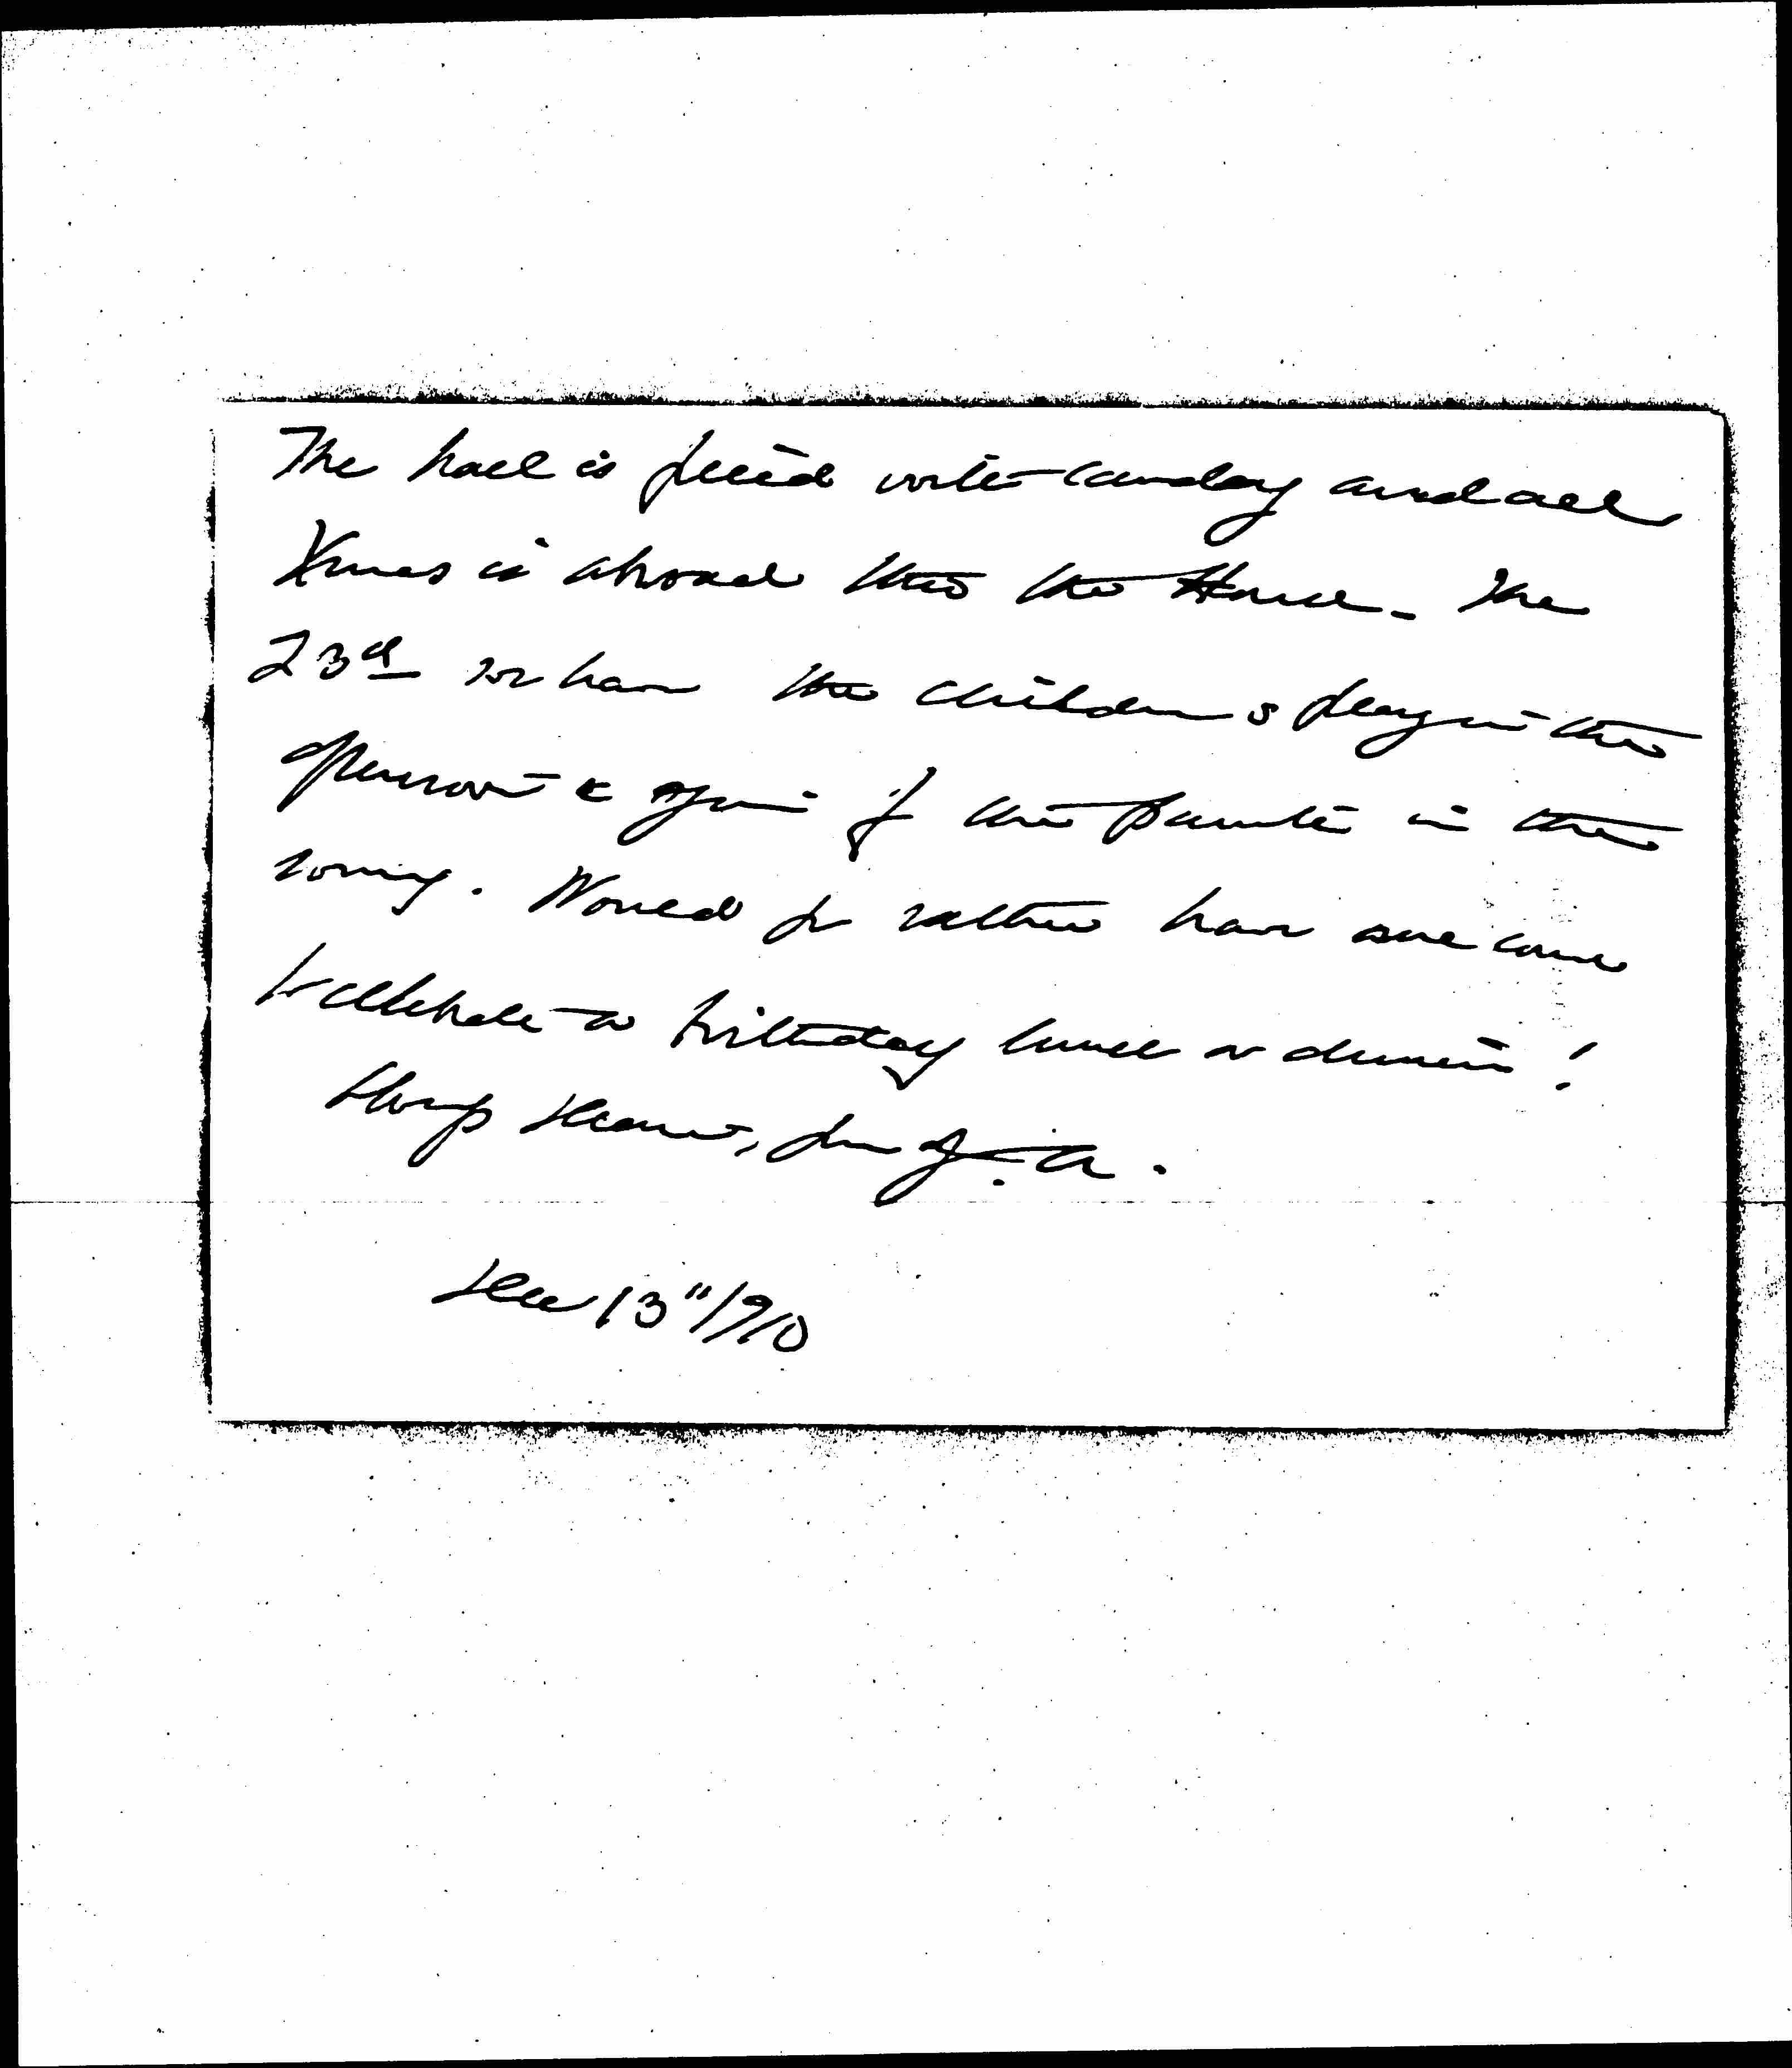 The hall is filled with candy and all
Xmas is abroad thro the House - The
23d we have the children's play in the
afternoon & again for the parents in the
evening. Would you rather have me come
to celebrate a birthday lunch or dinner!
Always yours, J.A.
Dec 13"/910